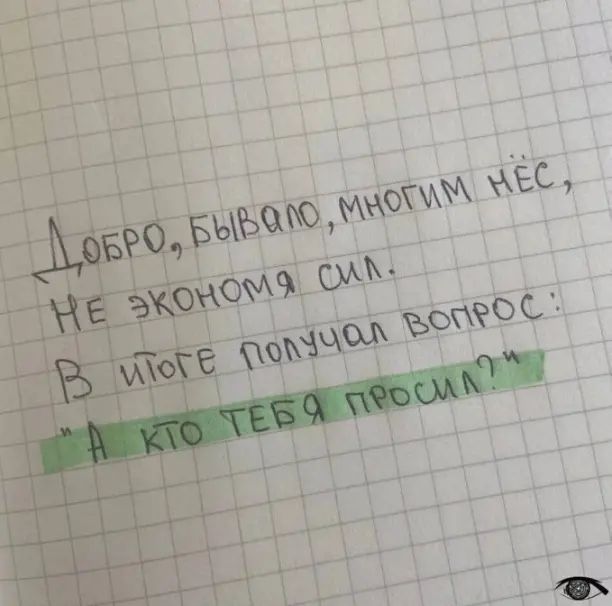 Добро, бывало, многим нёс,
не экономя сил.
В итоге получал вопрос:
"А кто тебя просил?"